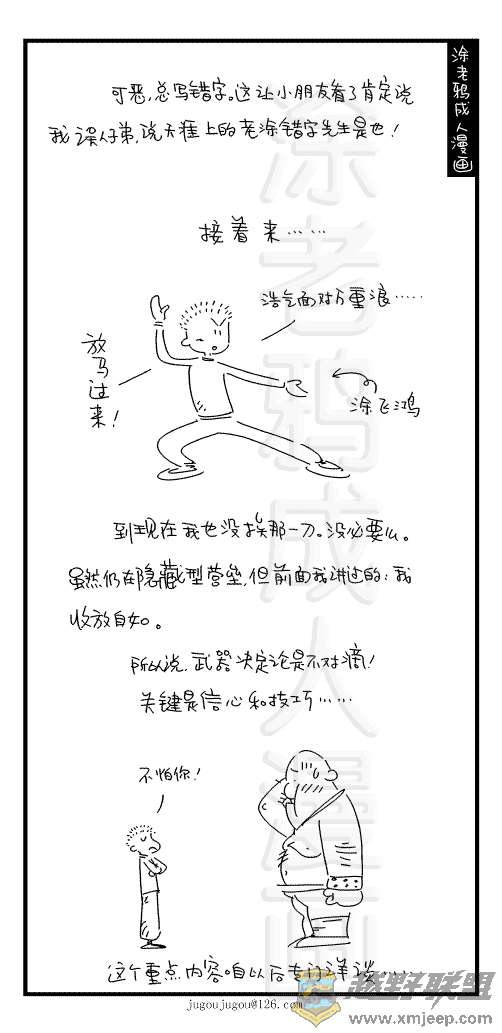 涂老鸦成人漫画
可恶,总写错字。这让小朋友看了肯定说
我误人子弟,说天涯上的老涂错字先生是也!
接着来……
浩气面对万重浪……
放马过来!
涂飞鸿
到现在我也没挨那一刀。没必要么。
虽然仍在隐藏型营垒,但前面我讲过的:我
收放自如。
所以说,武器决定论是不对滴!
关键是信心和技巧……
不怕你!
这个重点内容咱以后专门详谈……
jugoujugou@126.com
越野联盟
www.xmjeep.com
涂老鸦成人漫画